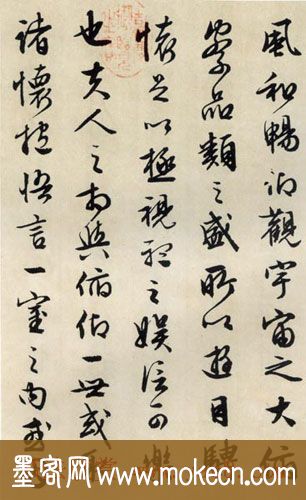 風和暢仰觀宇宙之大俯
察品類之盛所以遊目騁
懷足以極視聽之娛信可樂
也夫人之相與俯仰一世或取
諸懷抱悟言一室之內或
墨客网 www.mokecn.com